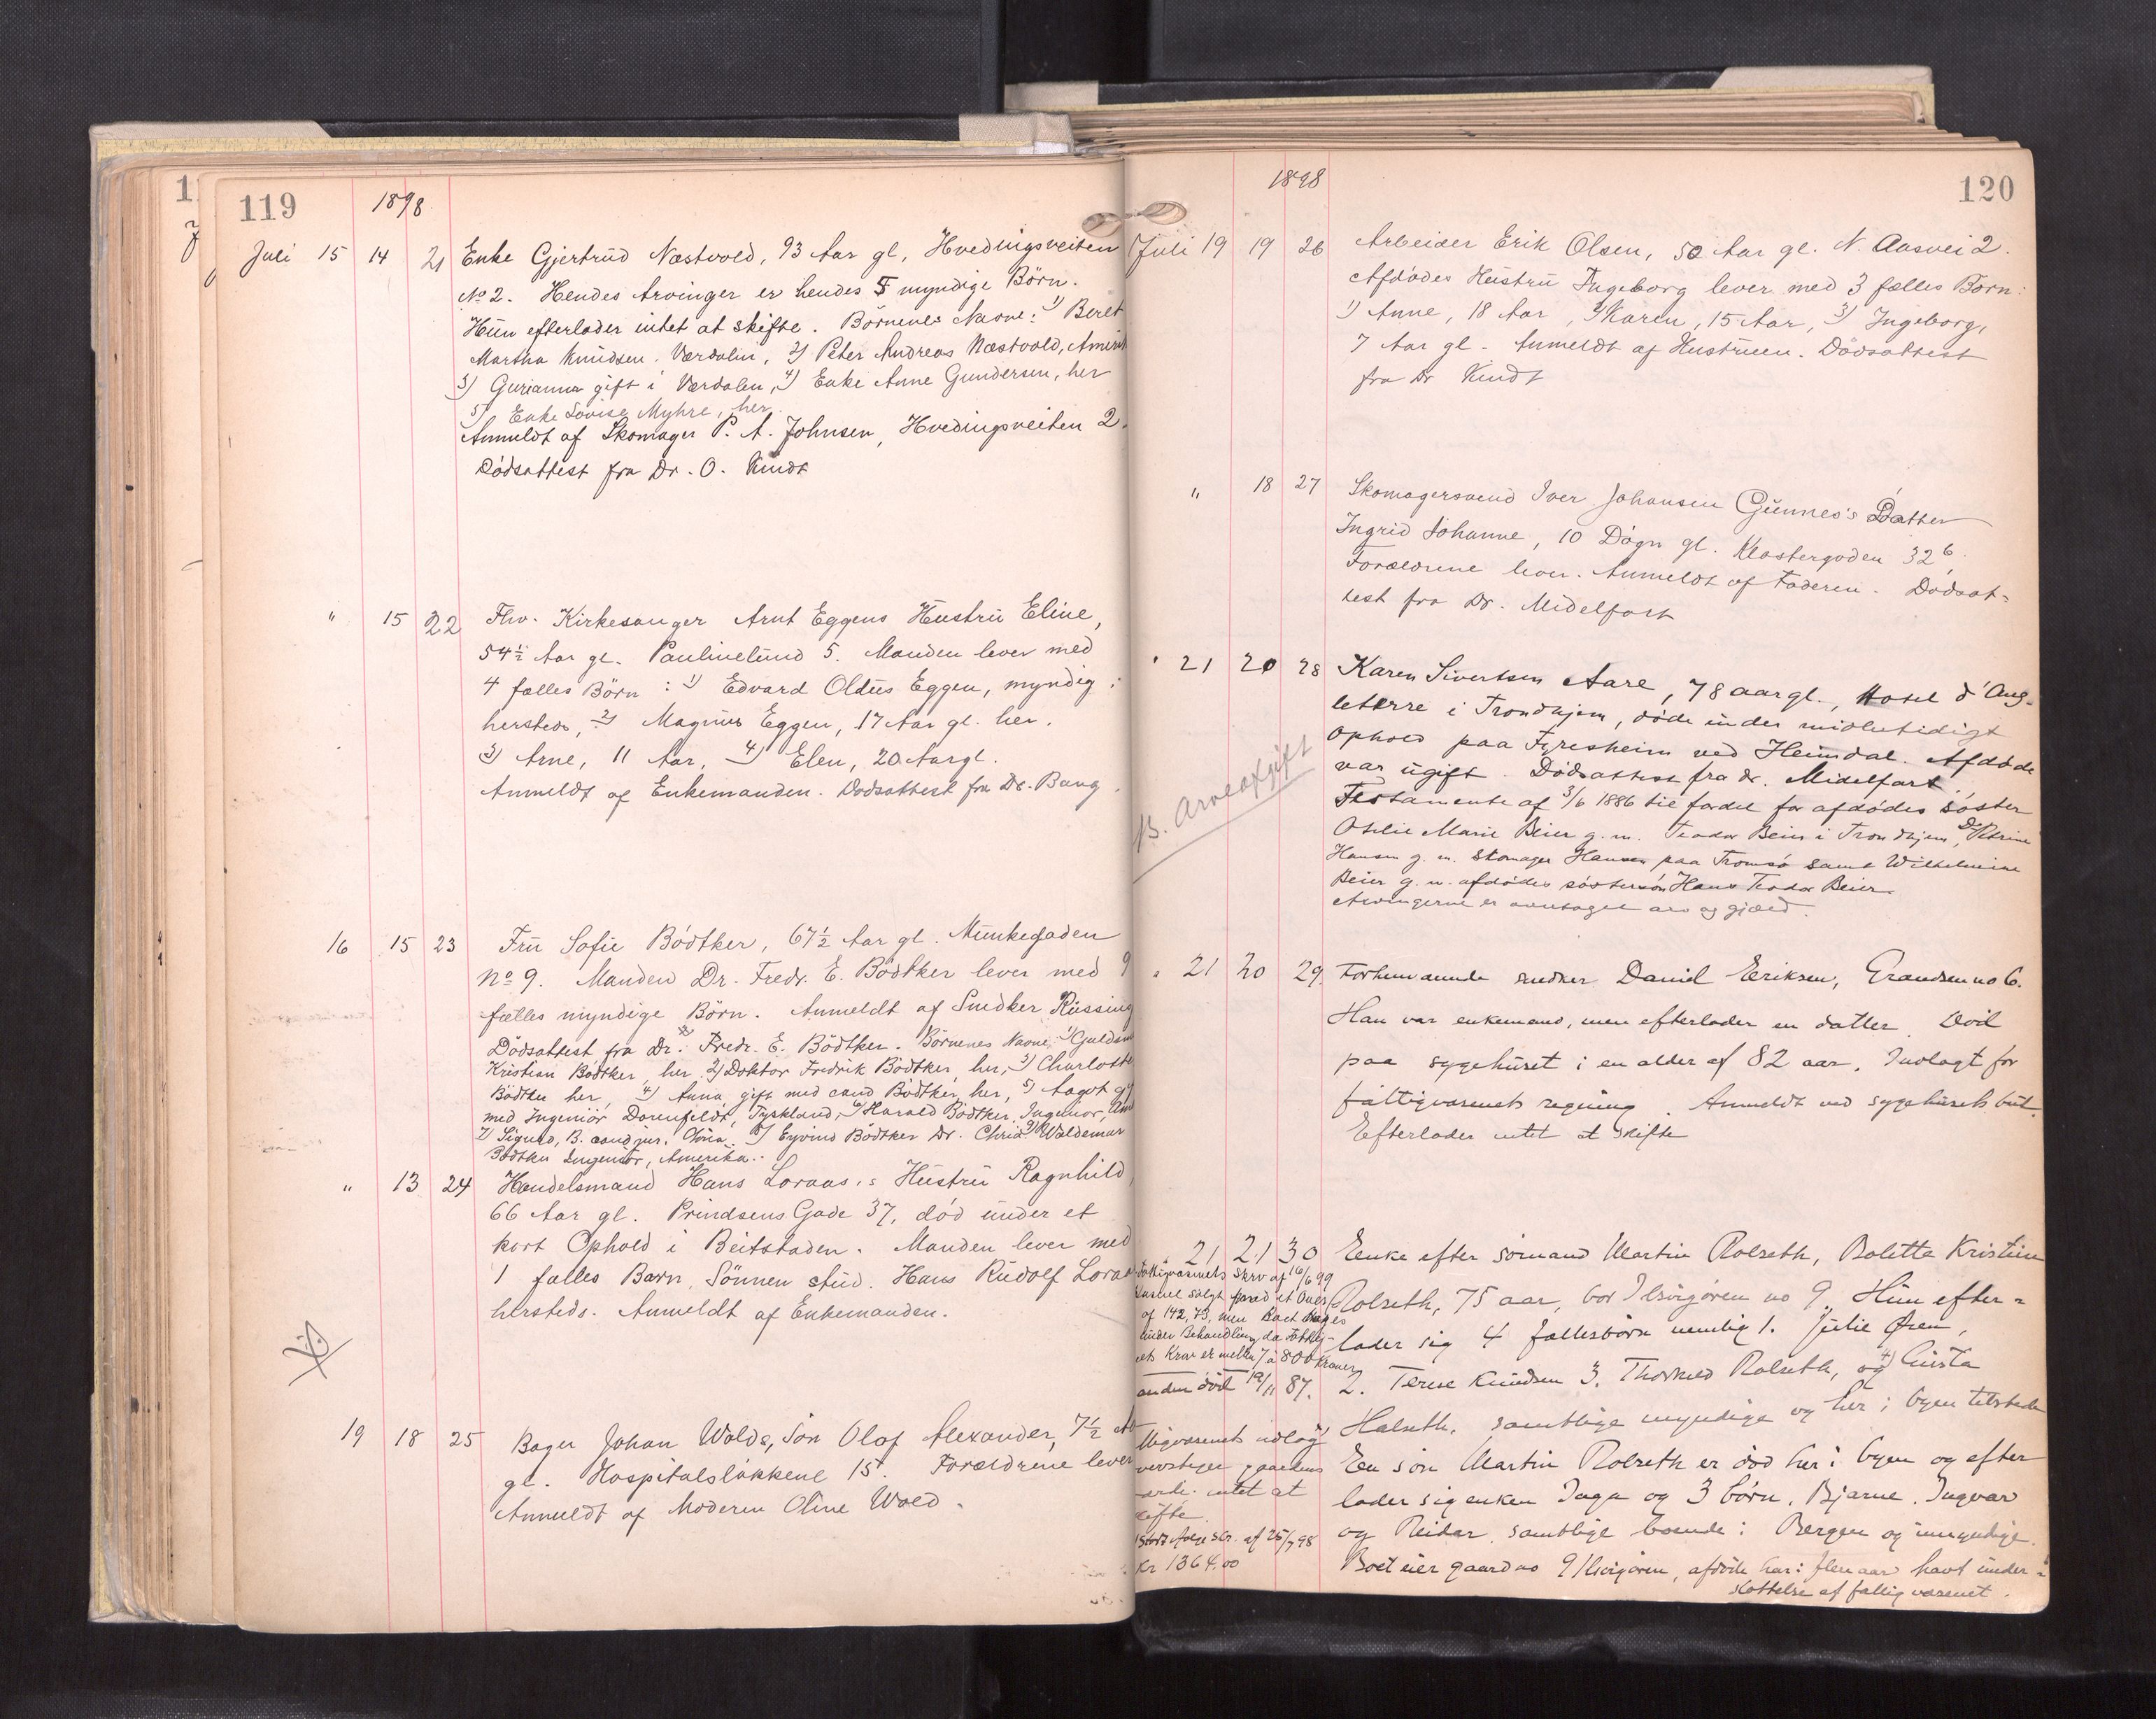 119
1898
Juli 15 14 21 Enke Gjertrud Næstvold, 93 Aar gl, Hvedingsveiten
No 2. Hendes Arvinger er hendes 5 myndige Börn.
Hun efterlader intet at skifte. Börnenes Navne: 1) Beret
Martha Knudsen, Værdalen, 2) Peter Andreas Næstvold, Amerik
3) Gurianna gift i Værdalen, 4) Enke Anne Gundersen, her
5) Enke Lovise Myhre, her.
Anmeldt af Skomager P. A. Johnsen, Hvedingsveiten 2.
Dödsattest fra Dr. O. Kindt
" 15 22 Fhv. Kirkesanger Arnt Eggens Hustru Eline,
54 1/2 Aar gl. Paulinelund 5. Manden lever med
4 fælles Börn: 1) Edvard Oldus Eggen, myndig,
hersteds, 2) Magnus Eggen, 17 Aar gl. her.
3) Arne, 11 Aar, 4) Elen, 20 Aar gl.
Anmeldt af Enkemanden. Dödsattest fra Dr. Bang.
16 15 23 Fru Sofie Bödtker, 67 1/2 Aar gl. Munkegaden
No 9. Manden Dr. Fredr. E. Bödtker lever med 9
fælles myndige Börn. Anmeldt af Snedker Rissing
Dödsattest fra Dr. Fredr. E. Bödtker. Börnenes Navne: 1) Guldsm
Kristian Bödtker, her 2) Doktor Fredrik Bödtker, her, 3) Charlotte
Bödtker her, 4) Anna gift med cand Bödtker, her, 5) Aagot g
med Ingeniör Dorenfeldt, Tyskland, 6) Harald Bödtker, Ingeniör, Am
7) Sigurd, B. cand jur. Chria. 8) Eyvind Bödtker Dr. Chria. 9) Waldemar
Bödtker Ingeniör, Amerika.
" 13 24 Handelsmand Hans Loraas's Hustru Ragnhild,
66 Aar gl. Prindsens Gade 37, död under et
kort Ophold i Beitstaden. Manden lever med
1 fælles Barn, Sönnen stud. Hans Rudolf Loraas
hersteds. Anmeldt af Enkemanden.
19 18 25 Bager Johan Wolds, Sön Olaf Alexander, 7 1/2 
gl. Hospitalslökkene 15. Forældrene lever
Anmeldt af Moderen Oline Wold.
1898
120
Juli 19 19 26 Arbeider Erik Olsen, 50 Aar gl. N. Aasvei 2.
Afdödes Hustru Ingeborg lever med 3 fælles Börn:
1) Anne, 18 Aar, 2) Karen, 15 Aar, 3) Ingeborg,
7 Aar gl. Anmeldt af Hustruen. Dödsattest
fra Dr Kindt
" 18 27 Skomagersvend Iver Johansen Gunnes's Datter
Ingrid Johanne, 10 Dögn gl. Klostergaden 32 6.
Forældrene lever. Anmeldt af Faderen. Dödsat-
test fra Dr. Midelfart
" 21 20 28 Karen Sivertsen Aare, 78 aar gl., Hotel d'Ang-
leterre i Trondhjem, döde under midlertidigt
ophold paa Fyresheim ved Heimdal. Afdöde
var ugift. Dödsattest fra dr. Midelfart.
Testamente af 3/6 1886 til fordel for afdödes söster
Otelie Marie Beier g. m. Teodor Beier i Trondhjem, Do Petrine
Hansen g. m. Skomager Hansen paa Tromsö samt Wilhelmine
Beier g. m. afdödes söstersön Hans Teodor Beier.
Arvingerne er overtaget arv og gjæld.
B. Arveafgift
" 21 20 29. Forhenværende snedker Daniel Eriksen, Grandsen no 6.
Han var enkemand, men efterlader en datter. Död
paa sygehuset i en alder af 82 aar. Indlagt for
fattigvæsenets regning. Anmeldt ved sygehusets bud.
Efterlader intet at skifte
21 21 30 Enke efter sömand Martin Rolseth, Bolette Kristine
Rolseth, 75 aar, bor Ilsvigören no 9. Hun efter-
lader sig 4 fællesbörn nemlig 1. Julie Ören,
2. Terese Knudsen 3. Thorvald Rolseth, og 4) Gusta
Halseth, samtlige myndige og her i byen tilstede
En sön Martin Rolseth er död her i byen og efter
lader sig enken Inga og 3 börn, Bjarne, Ingvar
og Reidar, samtlige boende i Bergen og umyndige.
Boet eier gaard no 9 Ilsvigören, afdöde har i flere aar havt under-
stöttelse af fattigvæsenet.
Fattigvæsenets skrv af 16/6 99
Huset solgt 
af 142,73, men Boet tages
under Behandling, da Fattigv-
ets Krav er mellem 7 a 800 Kroner
anden död 19/11 87.
ttigvæsenets udlæg
overstiger gaardens
værdi. intet at
skifte.
 skr. af 25/7 98
Kr 1364.00